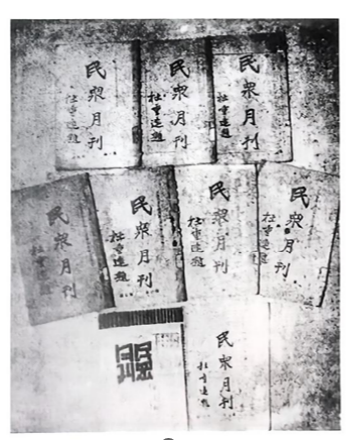 民眾月刊
杜重遠題
民眾月刊
杜重遠題
民眾月刊
杜重遠題
民眾月刊
杜重遠題
民眾月刊
杜重遠題
民眾月刊
杜重遠題
民眾月刊
杜重遠題
民眾月刊
杜重遠題